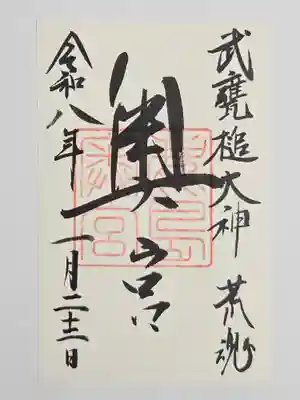 武甕槌大神 荒魂
奥宮
令和八年 一月二十二日